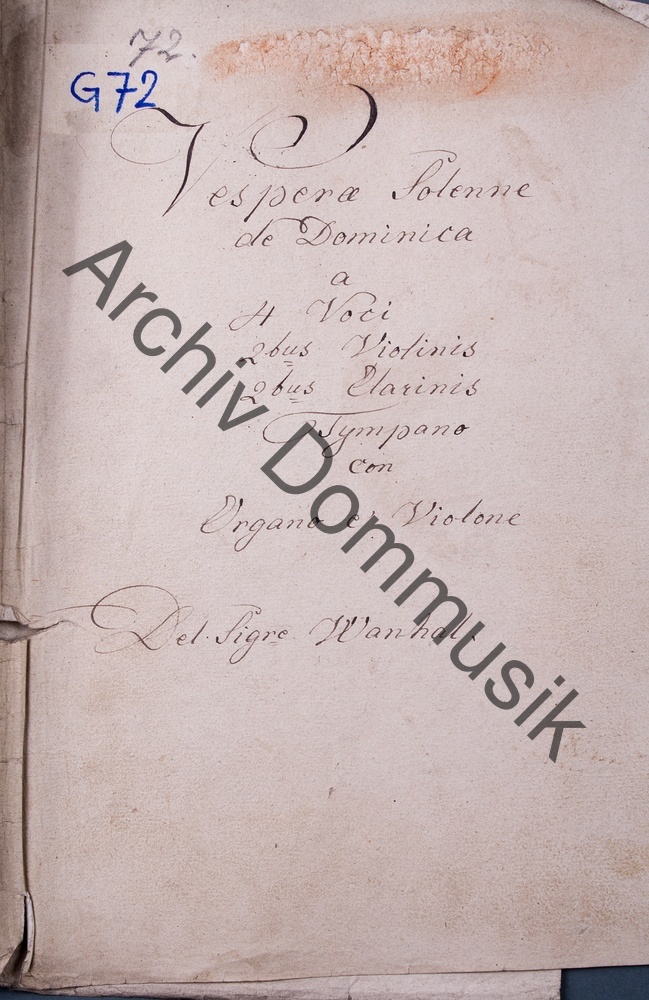 72.
G72
Vesperæ Solenne
de Dominica
a
4 Voci
2bus Violinis
2bus Clarinis
Tympano
con
Organo et Violone
Del Sigre Wanhal.
Archiv Dommusik